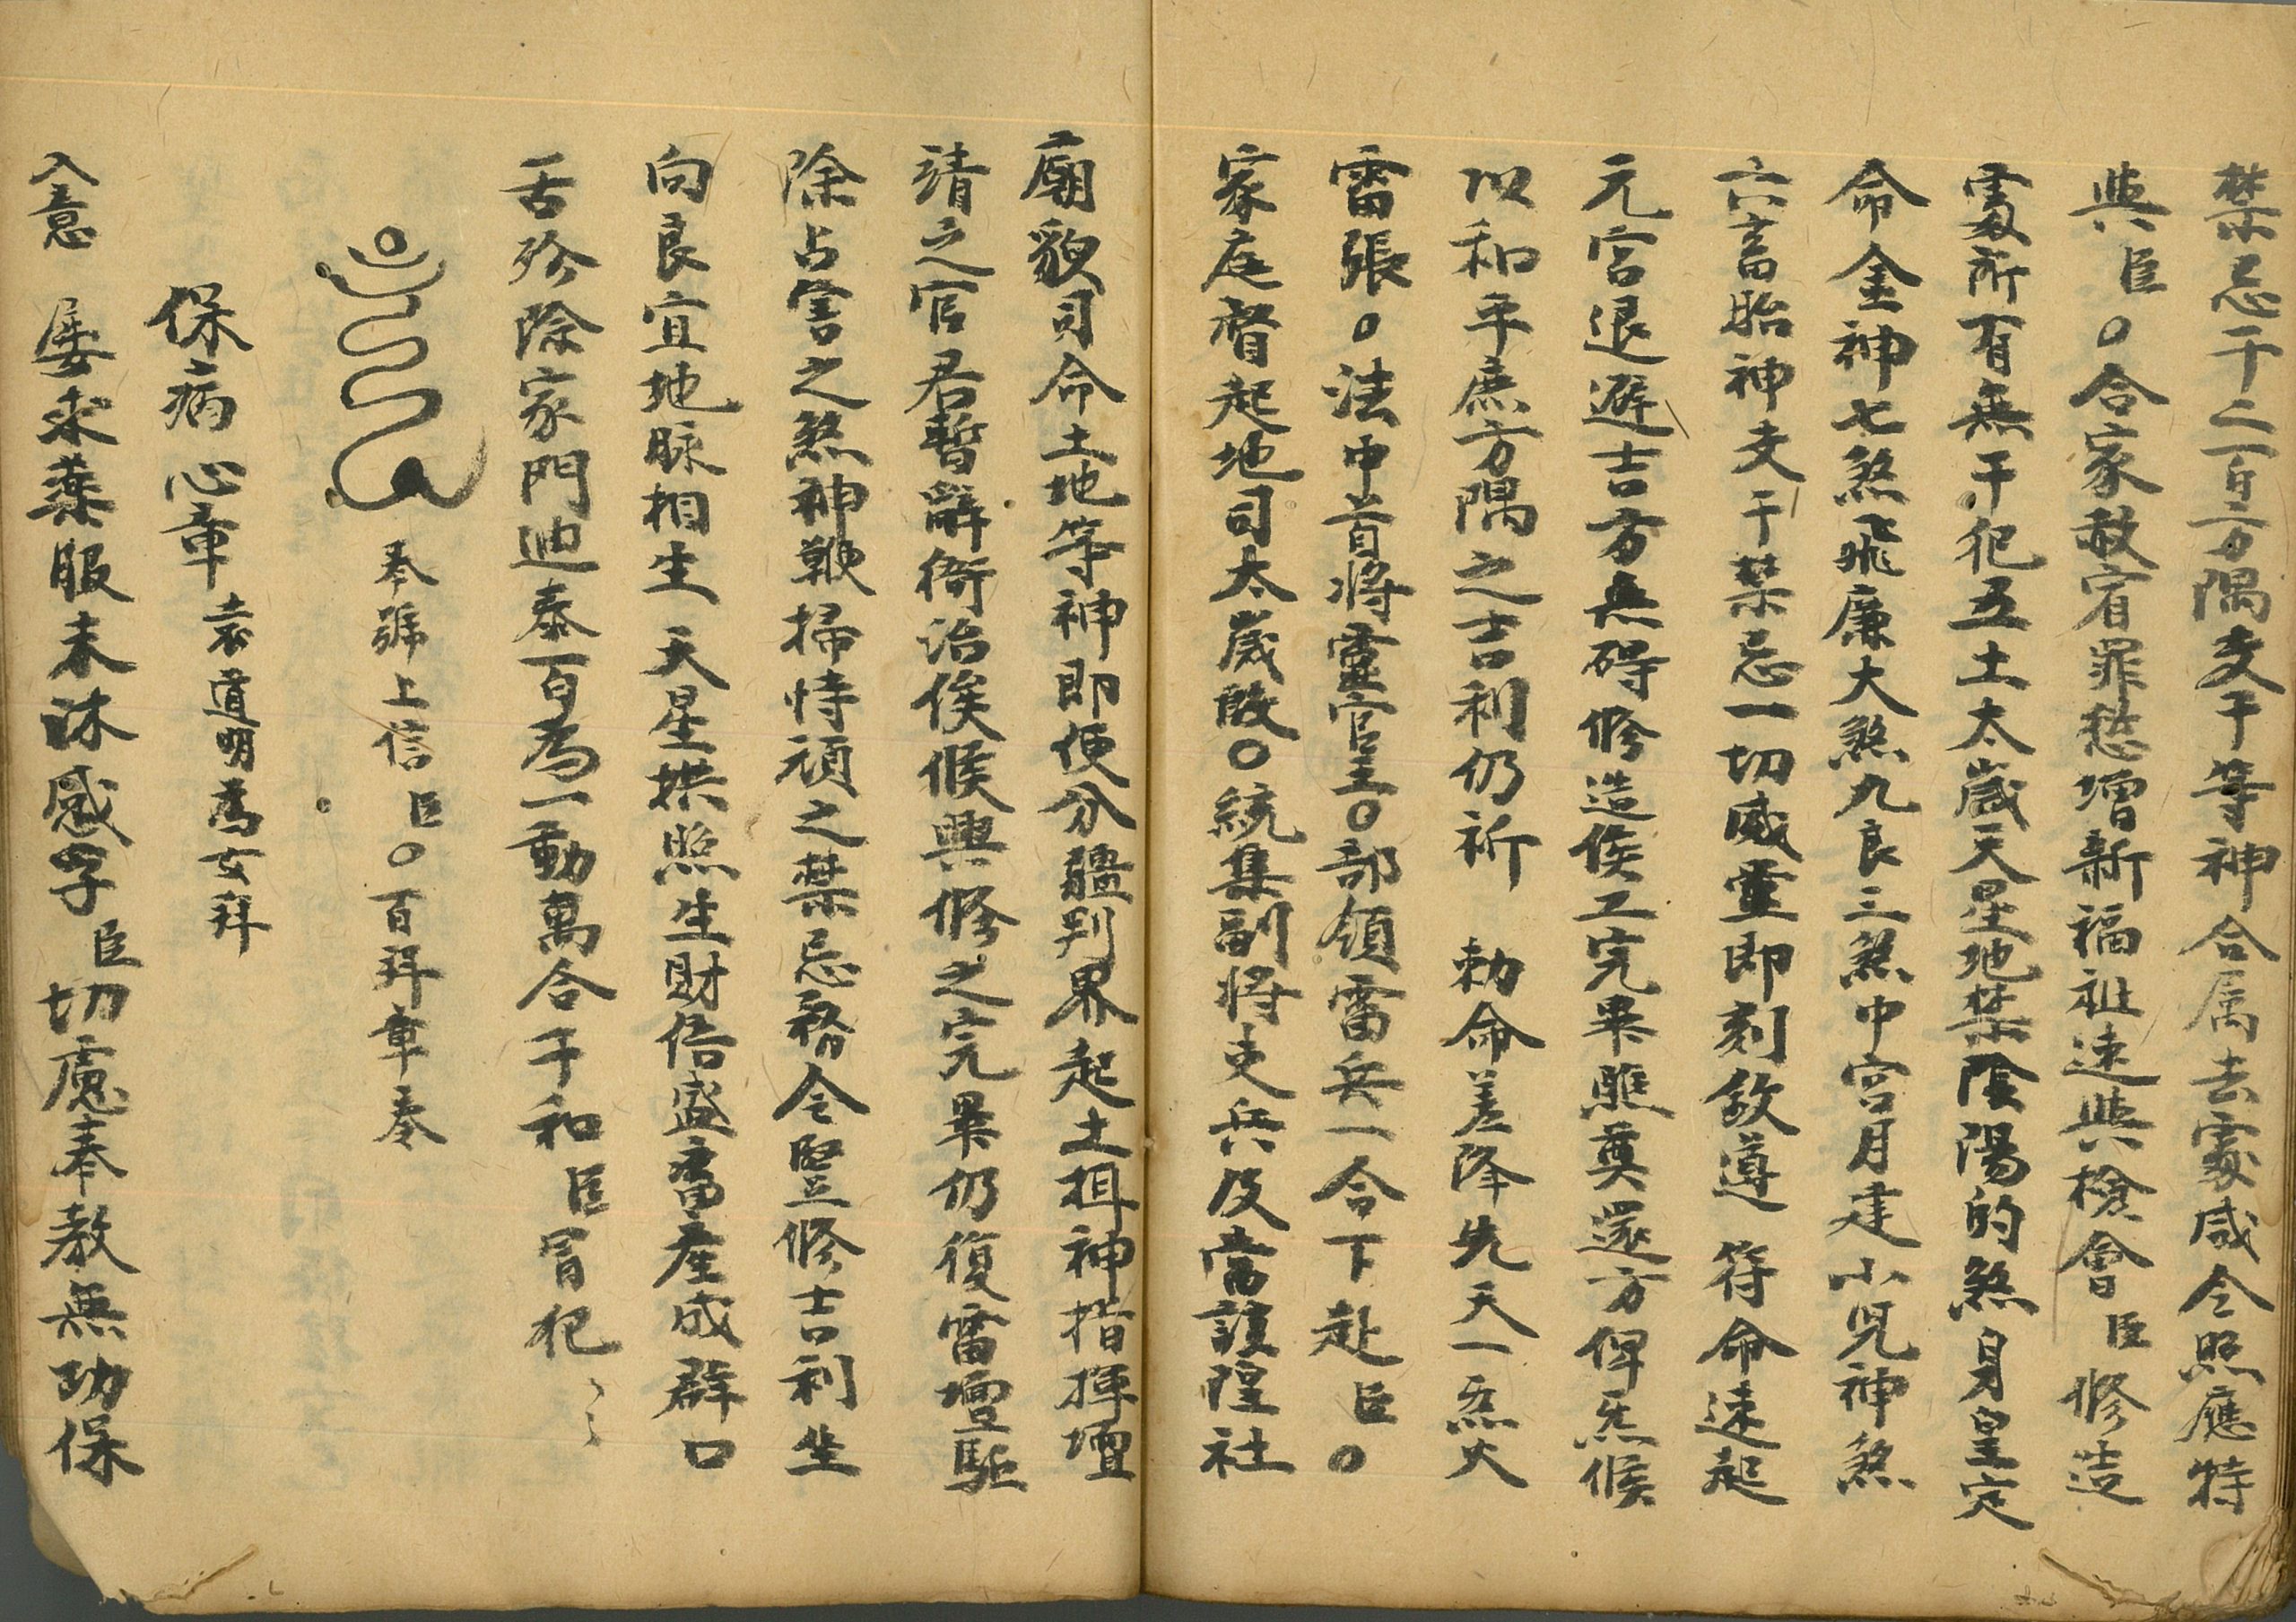 禁忌千二百方隅支干等神合属去䖏咸令照應特
與臣〇合家赦宥罪愆增新福祉速與檢會臣修造
䖏所有無干犯五土太歲天星地禁陰陽的煞身皇定
命金神七煞飛廉大煞九良三煞中宮月建小児神煞
六畜胎神支干禁忌一切威靈即刻欽遵符命速起
元宮退避吉方無碍修造俟工完畢醮奠还方俾炁候
以和平庶方隅之吉利仍祈 勅命差降先天一炁火
雷張〇法中首將靈官王〇部領雷兵一合下赴臣〇
家庭督起地司太歲殷〇統集副將吏兵及當護隍社
廟貌司命土地等神即便分疆判界起土揖神指揮壇
靖之官君暫辭衙治俟候興修之完畢仍復雷壇驅
除占害之煞神鞭掃恃頑之禁忌務令竪修吉利坐
向良宜地脉相生天星拱照生財倍盛畜産成群口
舌殄除家門迪泰百為一動萬合千和臣冒犯〻〻
奉號上信臣〇百拜章奏
保病心章 袁道明為女拜
入意 屡求藥服未沐感孚臣切慮奉教無功保